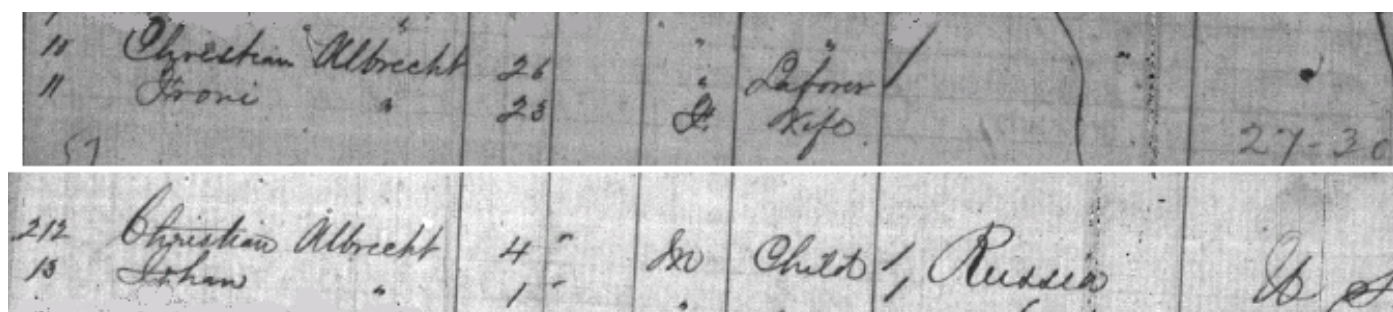 10 Christian Albrecht 26 " Laborer / " "
11 Froni " 23 F. Wife
57 27-30
212 Christian Albrecht 4 " M Child / Russia U S
13 Johan " 1 " "